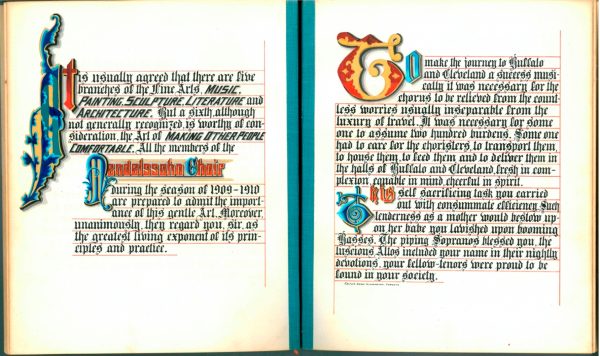 It is usually agreed that there are five
branches of the Fine Arts, MUSIC,
PAINTING, SCULPTURE, LITERATURE and
ARCHITECTURE. But a sixth, although
not generally recognized, is worthy of con-
sideration, the Art of MAKING OTHER PEOPLE
COMFORTABLE. All the members of the
Mendelssohn Choir
during the season of 1909-1910
are prepared to admit the import-
ance of this gentle Art. Moreover,
unanimously, they regard you, sir, as
the greatest living exponent of its prin-
ciples and practice.
To make the journey to Buffalo
and Cleveland a success musi-
cally it was necessary for the
chorus to be relieved from the count-
less worries usually inseparable from the
luxury of travel. It was necessary for some
one to assume two hundred burdens. Some one
had to care for the choristers, to transport them,
to house them, to feed them and to deliver them in
the halls of Buffalo and Cleveland, fresh in com-
plexion, equable in mind, cheerful in spirit.
This self sacrificing task you carried
out with consummate efficiency. Such
tenderness as a mother would bestow up-
on her babe you lavished upon booming
Basses. The piping Sopranos blessed you, the
luscious Altos included your name in their nightly
devotions, your fellow-tenors were proud to be
found in your society.